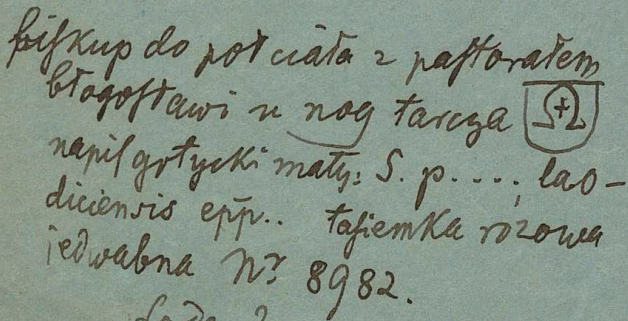 biskup do pół ciała z pastorałem
błogosławi u nóg tarcza
napis gotycki mały: S. p. . . . , lao-
diciensis epp.. tasiemka różowa
jedwabna Nr. 8982.